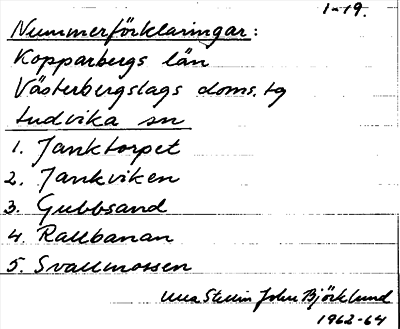 1-19.
Nummerförklaringar:
Kopparbergs län
Västerbergslags doms.tg
Ludvika sn
1. Janktorpet
2. Jankviken
3. Gubbsand
4. Rallbanan
5. Svallmossen
John Björklund
1962-64